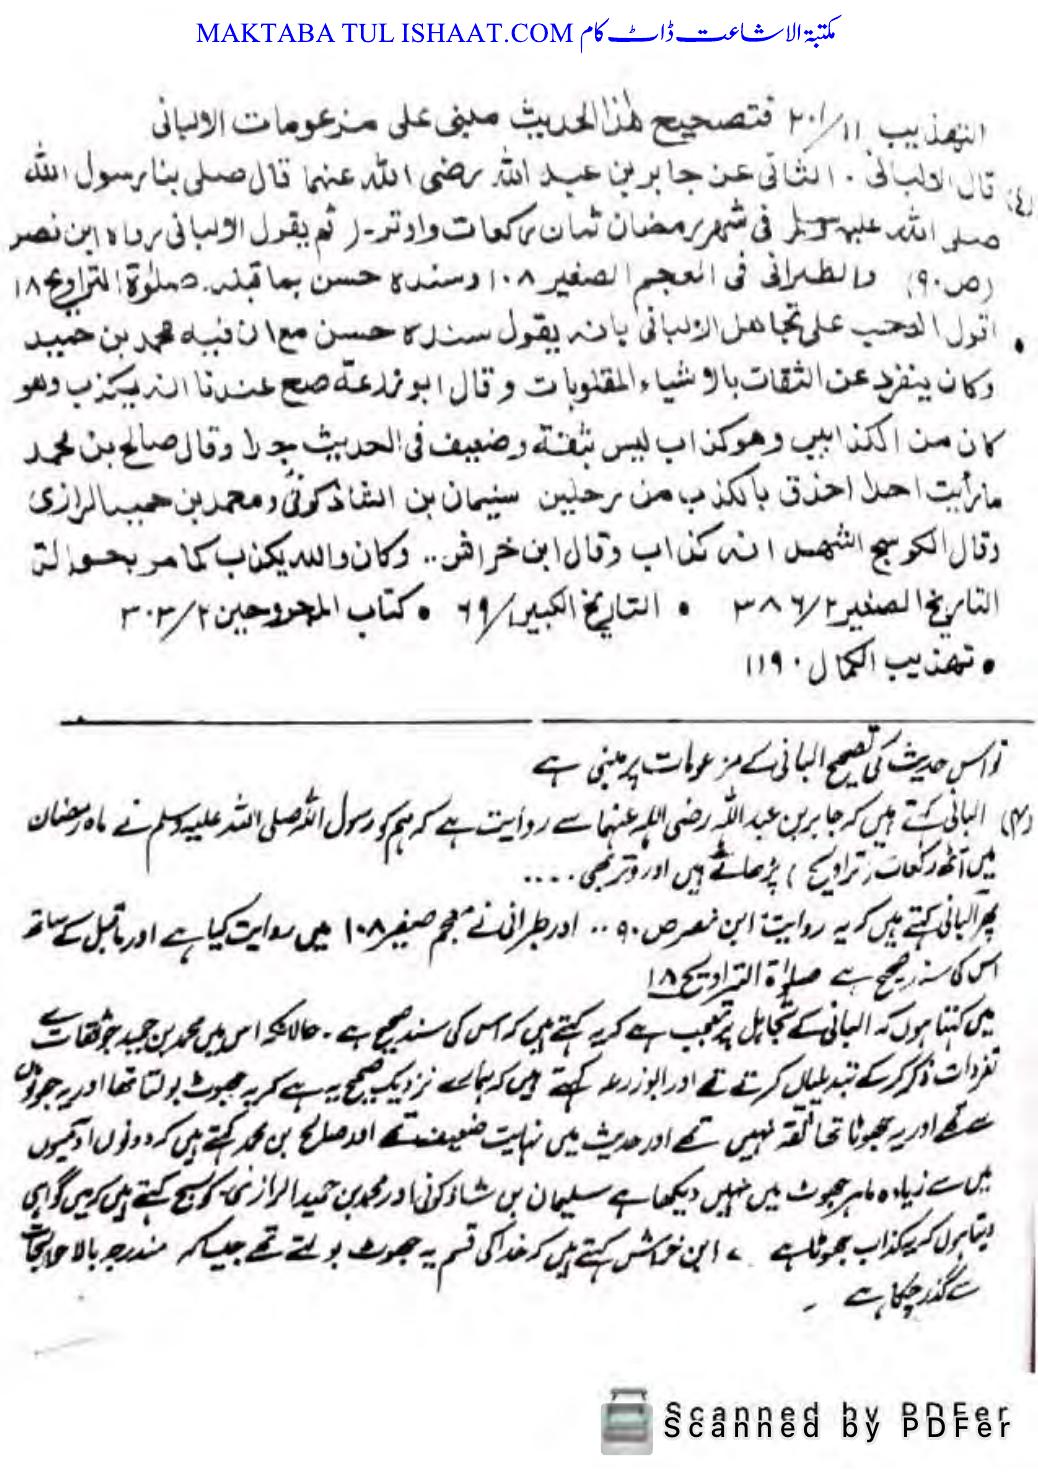 MAKTABA TUL ISHAAT.COM مکتبۃ الاشاعت ڈاٹ کام
التهذیب ۲۰۱/۱۱ فتصحیح هذا الحدیث مبنی علی مزعومات الالبانی
(٤) قال الالبانی . الثانی عن جابر بن عبد الله رضی الله عنهما قال صلی بنا رسول الله
صلی الله علیه وسلم فی شهر رمضان ثمان رکعات واوتر ثم یقول الالبانی رواه ابن نصر
(ص۹۰) والطبرانی فی المعجم الصغیر ۱۰۸ وسنده حسن بما قبله . صلوٰة التراویح ۱۸
• اقول العجب علی تجاهل الالبانی بانه یقول سنده حسن مع ان فیه محمد بن حمید
وکان ینفرد عن الثقات بالاشیاء المقلوبات وقال ابو زرعة صح عندنا انه یکذب وهو
کان من الکذابین وهو کذاب لیس بثقة وضعیف فی الحدیث جدا وقال صالح بن محمد
ما رأیت احدا احذق بالکذب من رجلین سلیمان بن الشاذکونی ومحمد بن حمید الرازی
وقال الکوسج اشهد انه کذاب وقال ابن خراش .. وکان والله یکذب کما مر بحواله
التاریخ الصغیر ۳۸۶/۲ • التاریخ الکبیر ۶۹/۱ • کتاب المجروحین ۳۰۳/۲
• تهذیب الکمال ۱۱۹۰
تو اس حدیث کی تصحیح البانی کے مزعومات پر مبنی ہے
(۴) البانی کہتے ہیں کہ جابر بن عبد اللہ رضی اللہ عنہما سے روایت ہے کہ ہم کو رسول اللہ صلی اللہ علیہ وسلم نے ماہ رمضان
میں آٹھ رکعات (تراویح) پڑھائے ہیں اور وتر بھی ....
پھر البانی کہتے ہیں کہ یہ روایت ابن نصر ص ۹۰ .. اور طبرانی نے معجم صغیر ۱۰۸ میں روایت کیا ہے اور ماقبل کے ساتھ
اس کی سند صحیح ہے صلوٰة التراویح ۱۸
میں کہتا ہوں کہ البانی کے تجاہل پر تعجب ہے کہ یہ کہتے ہیں کہ اس کی سند صحیح ہے ۔ حالانکہ اس میں محمد بن حمید جو ثقات سے
تفردات ذکر کرکے تبدیلیاں کرتے تھے اور ابو زرعہ کہتے ہیں کہ ہمارے نزدیک صحیح یہ ہے کہ یہ جھوٹ بولتا تھا اور یہ جھوٹوں
سے تھے اور یہ جھوٹا تھا ثقہ نہیں تھے اور حدیث میں نہایت ضعیف تھے اور صالح بن محمد کہتے ہیں کہ دونوں آدمیوں
میں سے زیادہ ماہر جھوٹ میں نہیں دیکھا ہے سلیمان بن شاذکونی اور محمد بن حمید الرازی کوسج کہتے ہیں کہ میں گواہی
دیتا ہوں کہ یہ کذاب جھوٹا ہے ۔ ابن خراش کہتے ہیں کہ خدا کی قسم یہ جھوٹ بولتے تھے جیسا کہ مندرجہ بالا حوالجات
سے گذر چکا ہے ۔
Scanned by PDFer